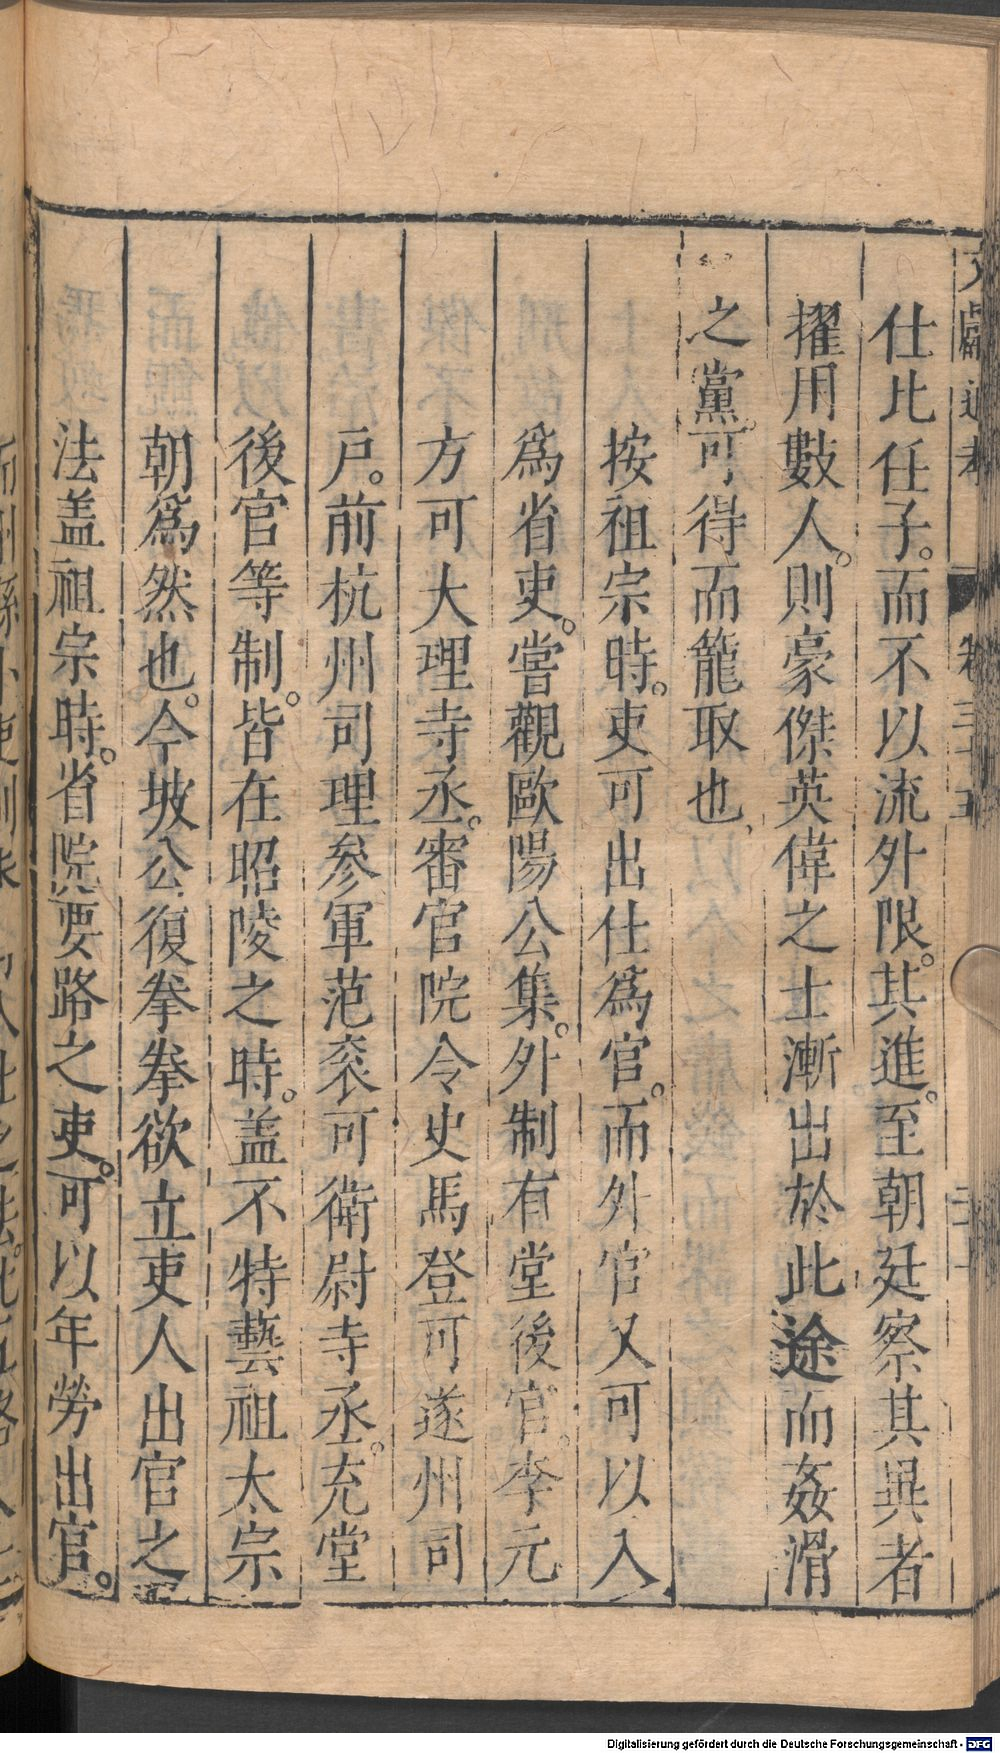 文獻通考 卷三十五
仕比任子。而不以流外限。其進。至朝廷察其異者
擢用數人。則豪傑英偉之士漸出於此途而姦滑
之黨。可得而籠取也
按祖宗時。吏可出仕爲官。而外官又可以入
爲省吏。嘗觀歐陽公集。外制有堂後官。李元
方可大理寺丞。審官院令史馬登可遂州司
戶。前杭州司理參軍范衮可衛尉寺丞。充堂
後官等制。皆在昭陵之時。盖不特藝祖太宗
朝爲然也。今坡公復拳拳欲立吏人出官之
法盖祖宗時。省院要路之吏。可以年勞出官。
Digitalisierung gefördert durch die Deutsche Forschungsgemeinschaft - DFG